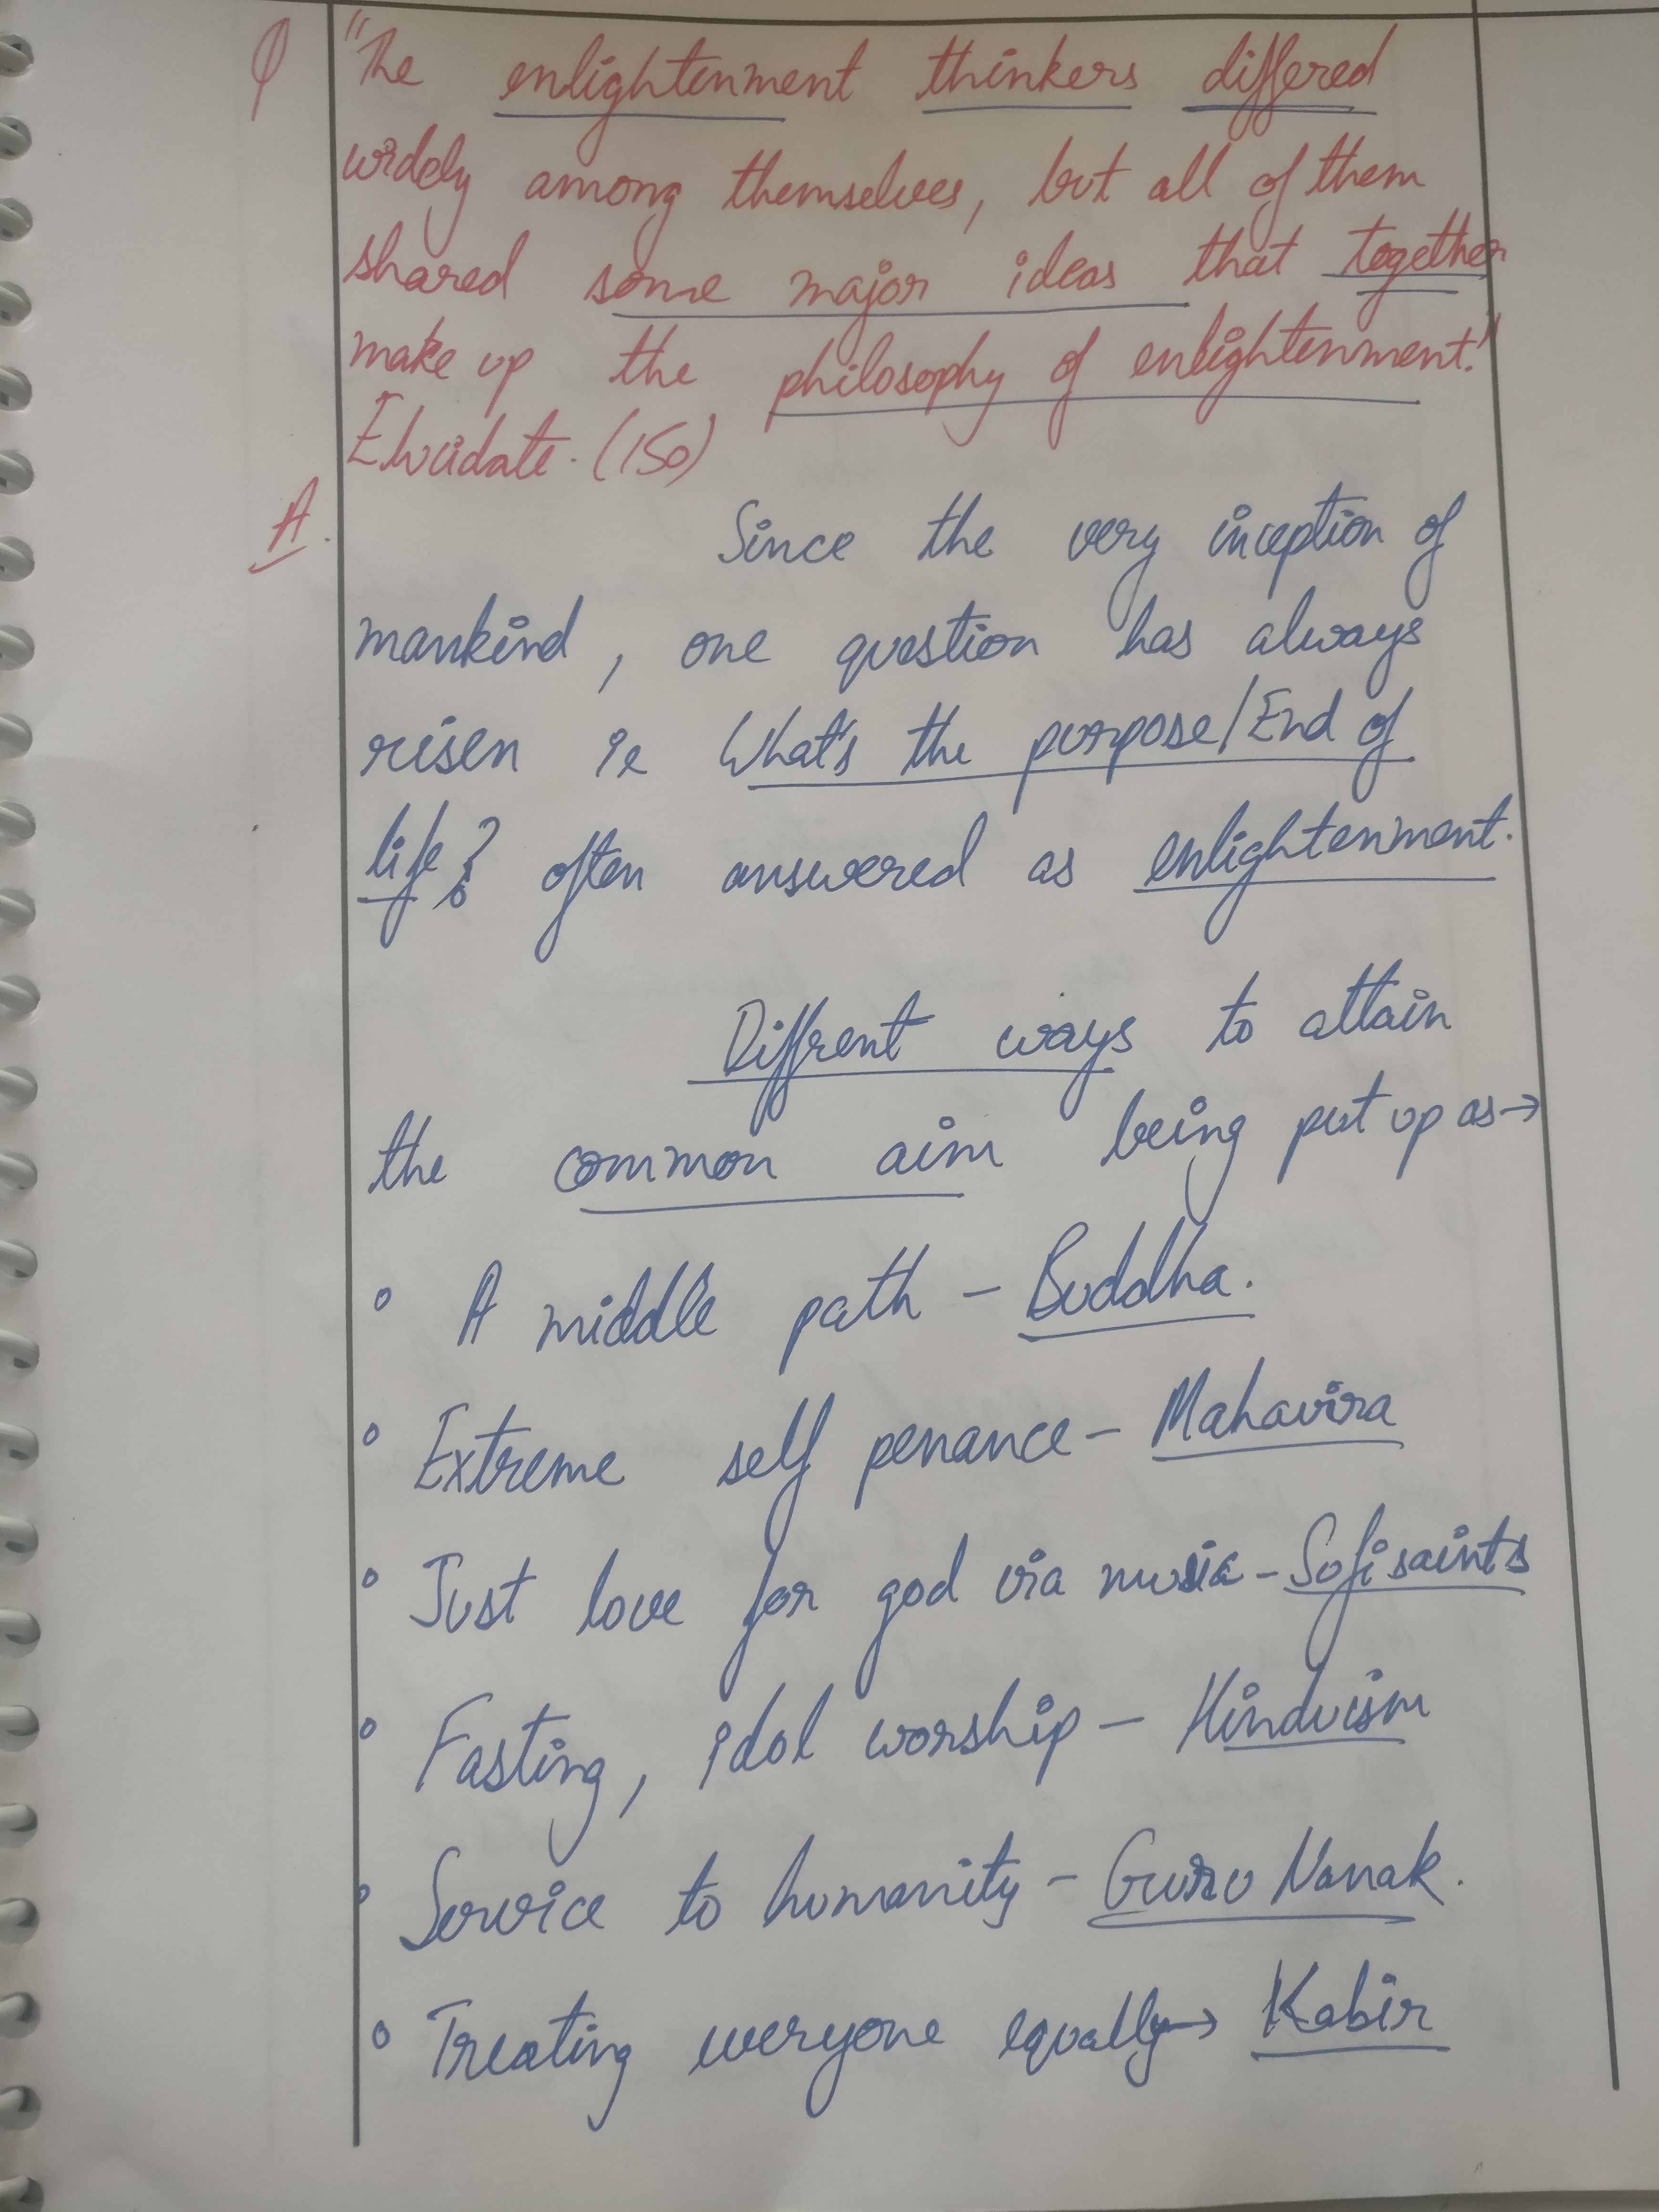 Q "The enlightenment thinkers differed
widely among themselves, but all of them
shared some major ideas that together
make up the philosophy of enlightenment."
Elucidate. (150)
A. Since the very inception of
mankind, one question has always
risen ie What's the purpose/End of
life? often answered as enlightenment.
Diffrent ways to attain
the common aim being put up as→
° A middle path - Buddha.
° Extreme self penance - Mahavira
° Just love for god via music - Sofi saints
° Fasting, idol worship - Hinduism
° Service to humanity - Guru Nanak.
° Treating everyone equally → Kabir